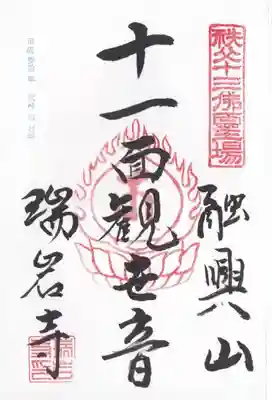 秩父十三佛霊場
融興山
十一面観世音
瑞岩寺